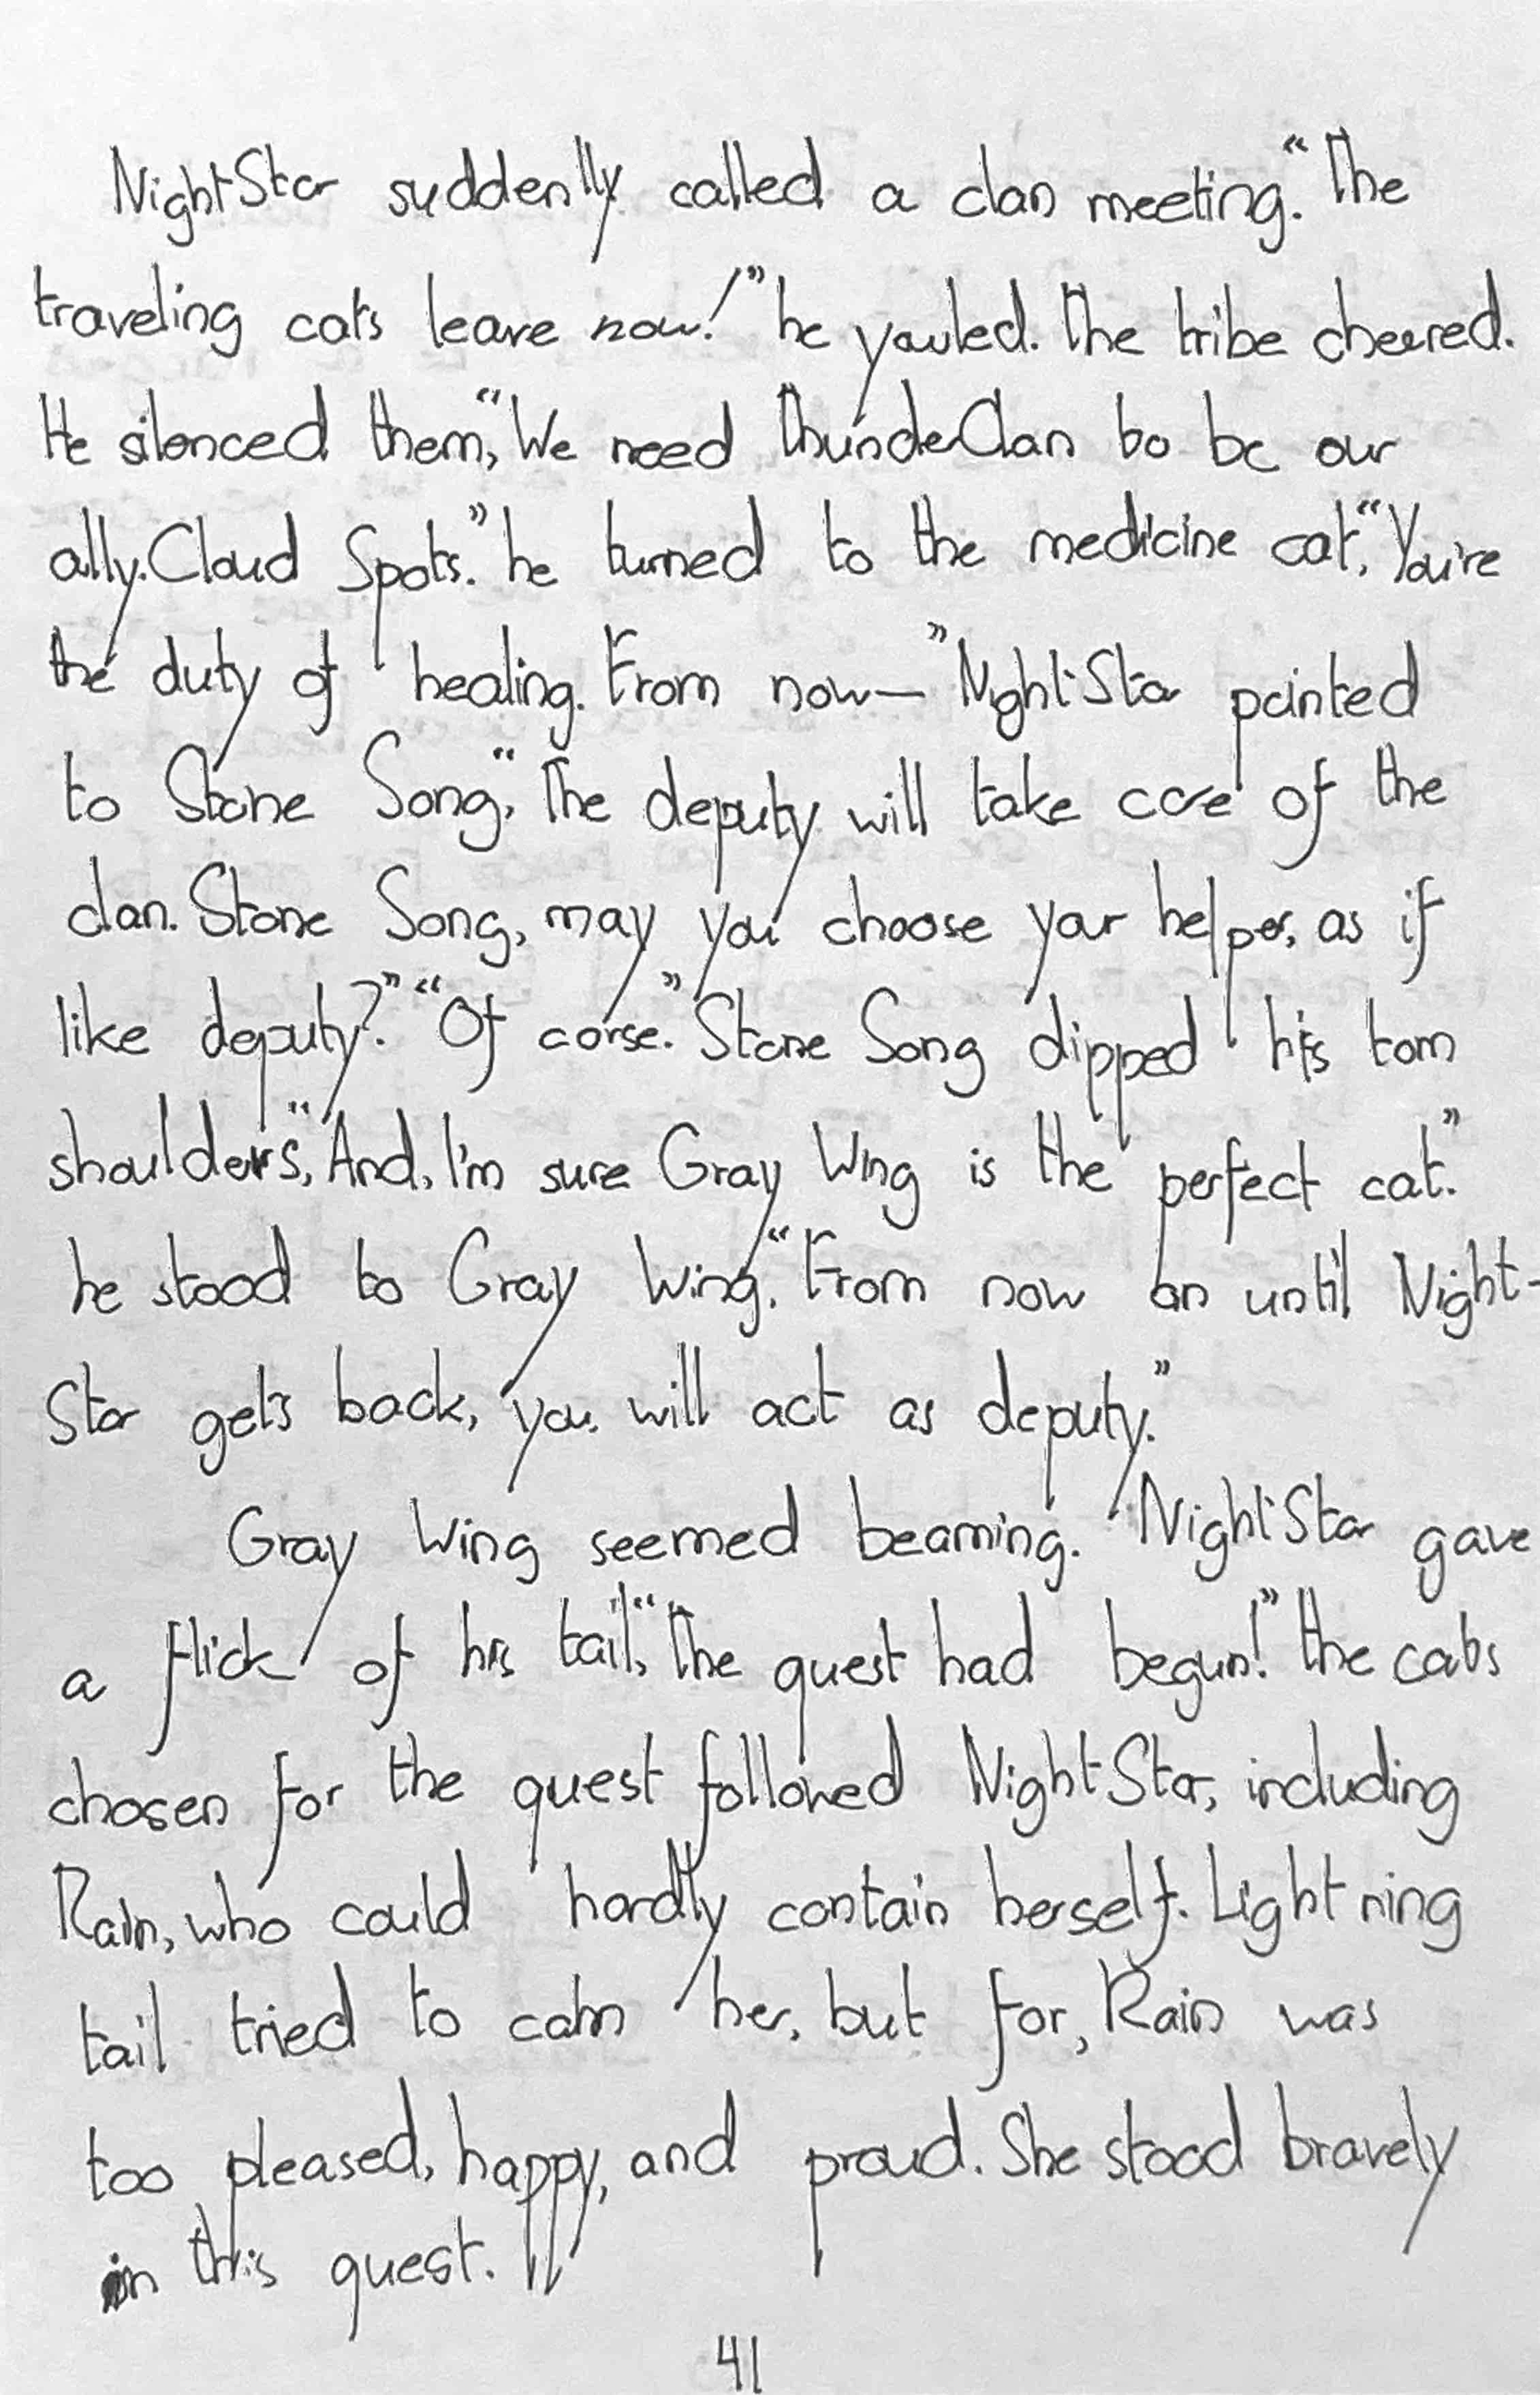 NightStar suddenlly called a clan meeting. "The
traveling cats leave now!" he yowled. The tribe cheered.
He silenced them, "We need ThunderClan to be our
ally. Cloud Spots." he turned to the medicine cat, "You're
the duty of healing. From now—" NightStar pointed
to Stone Song, "The deputy will take care of the
clan. Stone Song, may you choose your helper, as if
like deputy?" "Of corse." Stone Song dipped his tom
shoulders, "And, I'm sure Gray Wing is the perfect cat."
he stood to Gray Wing, "From now on until Night-
Star gets back, you will act as deputy."
Gray Wing seemed beaming. NightStar gave
a flick of his tail, "The quest had begun!" The cats
chosen for the quest followed NightStar, including
Rain, who could hardly contain herself. Lightning
tail tried to calm her, but for, Rain was
too pleased, happy, and proud. She stood bravely
in this quest.
41